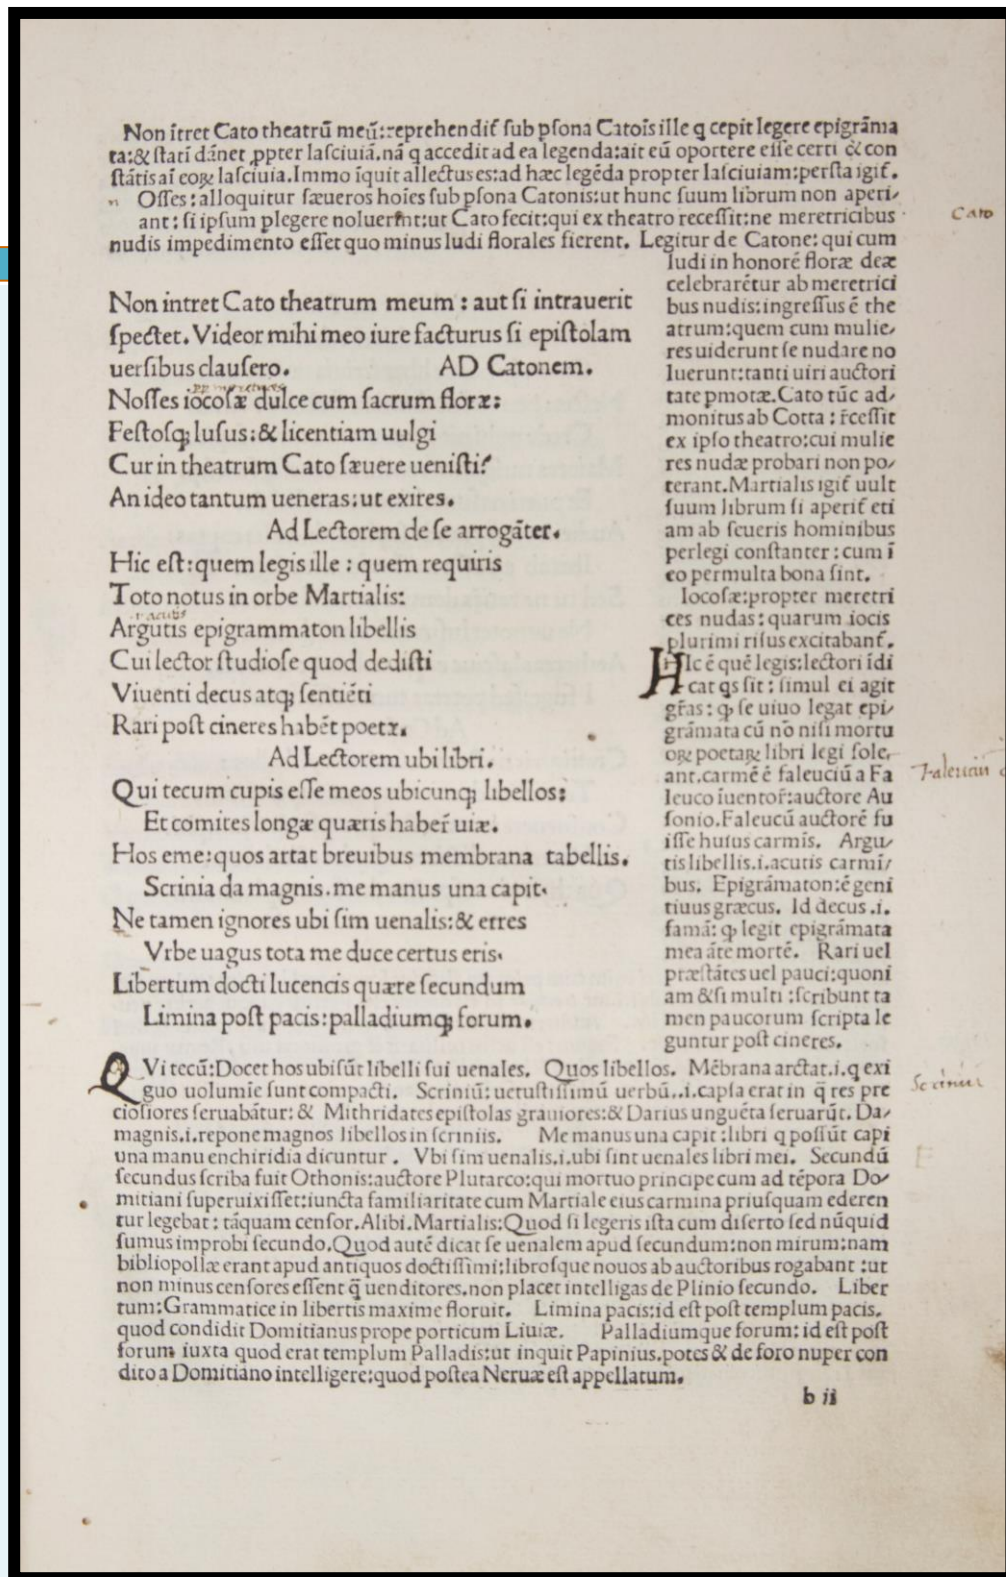 Non ītret Cato theatrū meū:reprehendit̄ ſub pſona Catoīs ille q cepit legere epigrāma
ta:& ſtatī dānet ꝓpter laſciuiā.nā q accedit ad ea legenda:ait eū oportere eſſe certi & con
ſtātis aī eoꝝ laſciuia.Immo īquit allectus es:ad hæc legēda propter laſciuiam:perſta igit̄.
Oſſes:alloquitur ſæueros hoīes ſub pſona Catonis:ut hunc ſuum librum non aperi/
ant:ſi ipſum plegere noluerīnt:ut Cato fecit:qui ex theatro receſſit:ne meretricibus
Cato
nudis impedimento eſſet quo minus ludi florales fierent. Legitur de Catone:qui cum
ludi in honorē floræ deæ
celebrarētur ab meretrici
bus nudis:ingreſſus ē the
atrum:quem cum mulie/
res uiderunt ſe nudare no
luerunt:tanti uiri auctori
tate pmotæ.Cato tūc ad/
monitus ab Cotta:r̄ceſſit
ex ipſo theatro:cui mulie
res nudæ probari non po/
terant.Martialis igit̄ uult
ſuum librum ſi aperit̄ eti
am ab ſeueris hominibus
perlegi conſtanter:cum ī
eo permulta bona ſint.
Iocoſæ:propter meretri
ces nudas:quarum iocis
plurimi riſus excitabant̄.
HIc ē quē legis:lectori īdi
cat qs ſit:ſimul ei agit
gr̄as:ꝙ ſe uiuo legat epi/
grāmata cū nō niſi mortu
oꝝ poetaꝝ libri legi ſole/
ant.carmē ē faleuciū a Fa
leuco īuentor̄:auctore Au
ſonio.Faleucū auctorē fu
iſſe huius carmīs. Argu/
tis libellis.i.acutis carmī/
bus. Epigrāmaton:ē geni
tiuus græcus. Id decus.i.
famā:ꝙ legit epigrāmata
mea āte mortē. Rari uel
præſtātes uel pauci:quoni
am & ſi multi:ſcribunt ta
men paucorum ſcripta le
guntur poſt cineres.
Non intret Cato theatrum meum:aut ſi intrauerit
ſpectet.Videor mihi meo iure facturus ſi epiſtolam
uerſibus clauſero. AD Catonem.
Noſſes iocoſæ dulce cum ſacrum floræ:
Feſtoſqꝫ luſus:& licentiam uulgi
Cur in theatrum Cato ſæuere ueniſti?
An ideo tantum ueneras:ut exires.
Ad Lectorem de ſe arrogāter.
Hic eſt:quem legis ille:quem requiris
Toto notus in orbe Martialis:
Argutis epigrammaton libellis
Cui lector ſtudioſe quod dediſti
Viuenti decus atqꝫ ſentiēti
Rari poſt cineres habēt poetæ.
Ad Lectorem ubi libri.
Qui tecum cupis eſſe meos ubicunqꝫ libellos:
Et comites longæ quæris haber̄ uiæ.
Hos eme:quos artat breuibus membrana tabellis.
Scrinia da magnis.me manus una capit.
Ne tamen ignores ubi ſim uenalis:& erres
Vrbe uagus tota me duce certus eris.
Libertum docti lucencis quære ſecundum
Limina poſt pacis:palladiumqꝫ forum.
QVi tecū:Docet hos ubi ſūt libelli ſui uenales. Quos libellos. Mēbrana arctat.i.q exi
guo uolumīe ſunt compacti. Scriniū:uetuſtiſſimū uerbū..i.capſa erat in q̄ res pre
cioſiores ſeruabātur:& Mithridates epiſtolas grauiores:& Darius unguēta ſeruarūt. Da/
magnis.i.repone magnos libellos in ſcriniis. Me manus una capit:libri q poſſūt capi
una manu enchiridia dicuntur. Vbi ſim uenalis.i.ubi ſint uenales libri mei. Secundū
ſecundus ſcriba fuit Othonis:auctore Plutarco:qui mortuo principe cum ad tēpora Do/
mitiani ſuperuixiſſet:iuncta familiaritate cum Martiale eius carmina priuſquam ederen
tur legebat:tāquam cenſor.Alibi.Martialis:Quod ſi legeris iſta cum diſerto ſed nūquid
ſumus improbi ſecundo.Quod autē dicat ſe uenalem apud ſecundum:non mirum:nam
bibliopollæ erant apud antiquos doctiſſimi:libroſque nouos ab auctoribus rogabant:ut
non minus cenſores eſſent q̄ uenditores.non placet intelligas de Plinio ſecundo. Liber
tum:Grammatice in libertis maxime floruit. Limina pacis:id eſt poſt templum pacis.
quod condidit Domitianus prope porticum Liuiæ. Palladiumque forum:id eſt poſt
forum iuxta quod erat templum Palladis:ut inquit Papinius.potes & de foro nuper con
dito a Domitiano intelligere:quod poſtea Neruæ eſt appellatum.
b ii